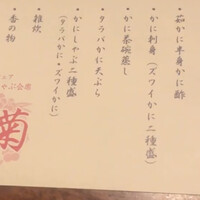 ・茹かに半身かに酢
・かに刺身(ズワイかに二種盛)
・かに茶碗蒸し
・タラバかに天ぷら
・かにしゃぶ二種盛
(タラバかに・ズワイかに)
・雑炊
・香の物
ゃぶ会席
菊